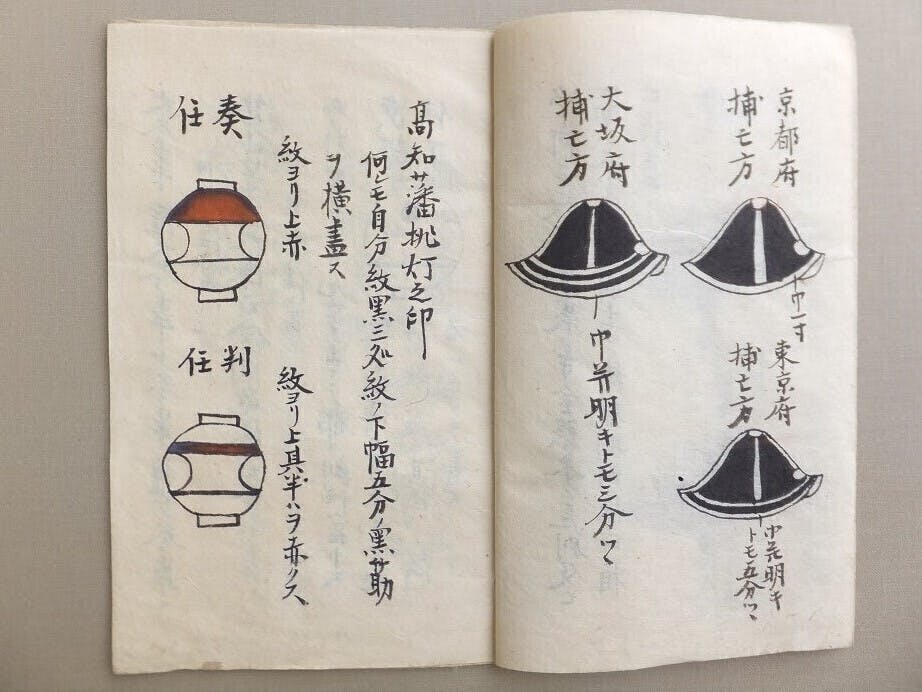 京都府
捕亡方
巾一寸
東京府
捕亡方
巾并明キ
トモ五分ツヽ
大坂府
捕亡方
巾并明キトモ三分ツヽ
高知藩挑灯之印
何レモ自分紋黒三処紋ノ下幅五分ノ黒筋
ヲ横ニ畫ス
奏任
紋ヨリ上赤
判任
紋ヨリ上其半ハヲ赤クス